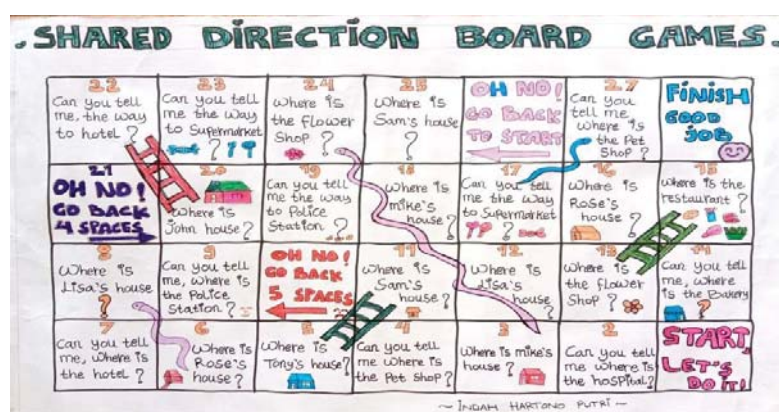 .SHARED DIRECTION BOARD GAMES.
22
Can you tell
me, the way
to hotel ?
23
Can you tell
me the way
to Supermarket
?
24
Where is
the flower
Shop ?
25
Where is
Sam's house
?
OH NO!
GO BACK
TO START
27
Can you
tell me
where is
the Pet
Shop ?
FINISH
GOOD
JOB
21
OH NO!
GO BACK
4 SPACES
20
Where is
John house?
19
Can you tell
me the way
to Police
Station ?
18
Where is
mike's
house ?
17
Can you tell
me the way
to Supermarket
?
16
Where is
Rose's
house ?
15
Where is the
restaurant ?
8
Where is
Lisa's house
?
9
Can you tell
me, where is
the Police
Station ?
OH NO!
GO BACK
5 SPACES
11
Where is
Sam's
house ?
12
Where is
Lisa's
house ?
13
Where is
the flower
Shop ?
14
Can you tell
me, Where
is the Bakery
?
7
Can you tell
me, where is
the hotel ?
6
Where is
Rose's
house?
5
Where is
Tony's house?
4
Can you tell
me where is
the Pet shop?
3
Where is mike's
house ?
2
Can you tell
me where is
the hospital?
START,
LET'S
DO IT!
~ INDAH HARTONO PUTRI ~